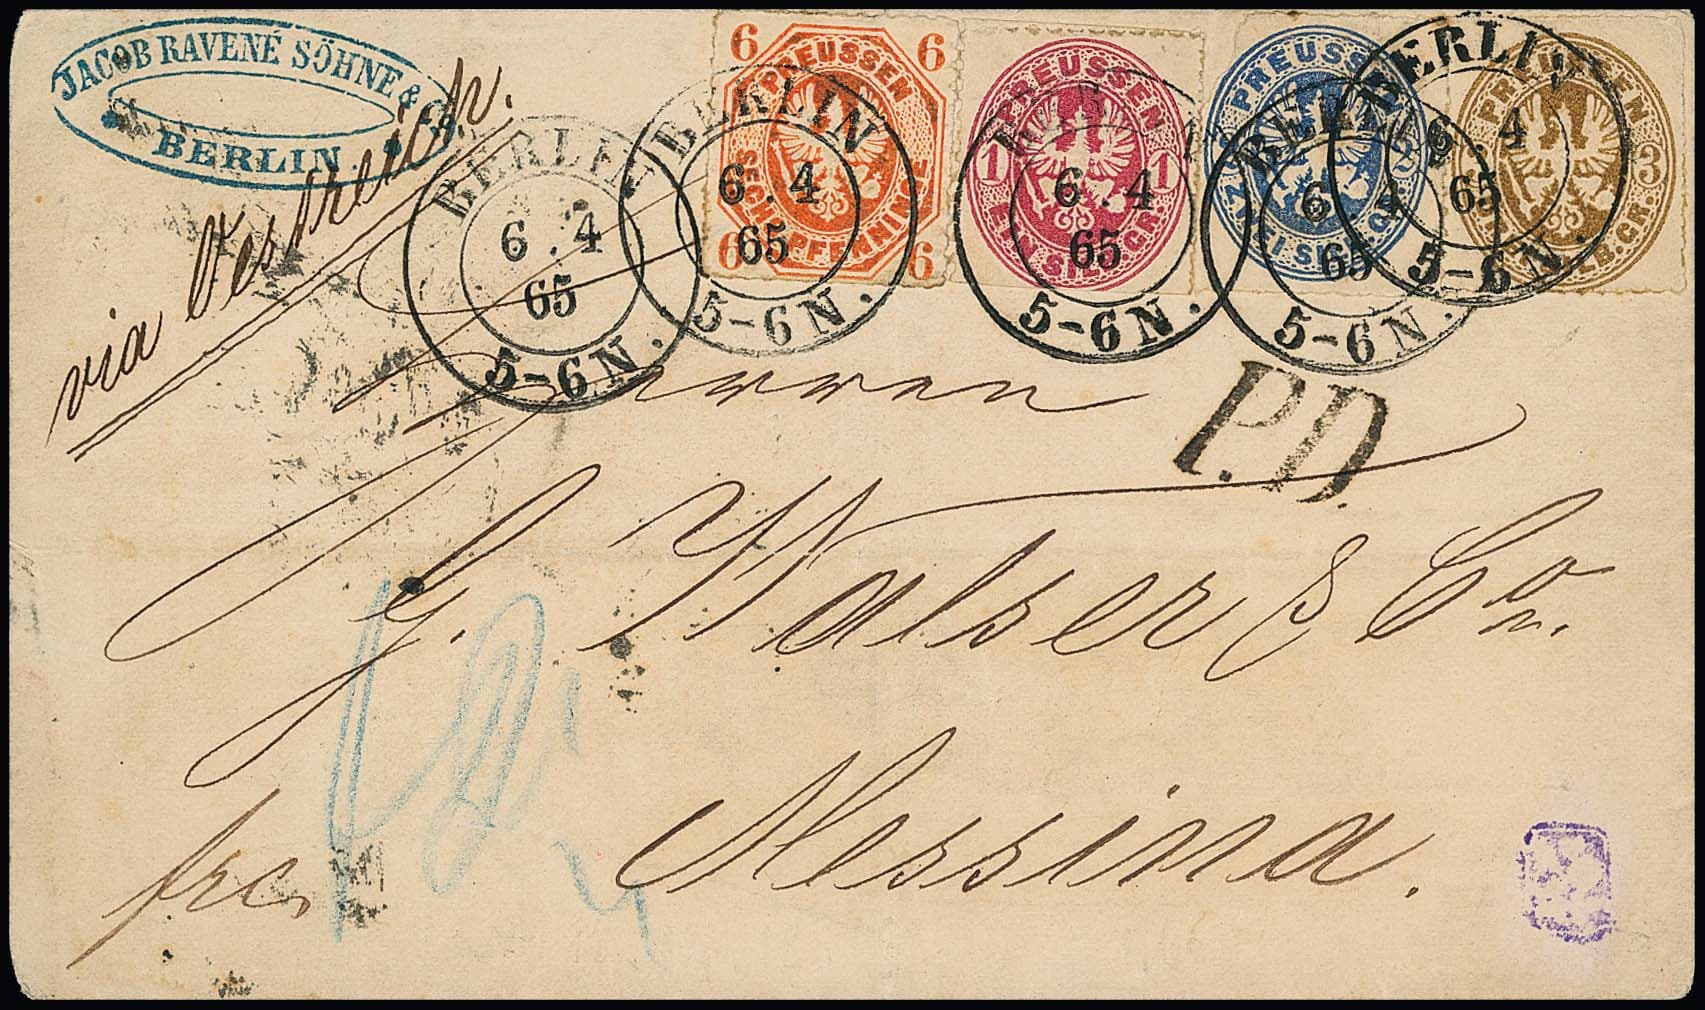 JACOB RAVENÉ SÖHNE & Co
BERLIN.
via Oestreich.
6 6
PREUSSEN
SECHS PFENNINGE
6 6
PREUSSEN
1 1
EIN SILB.GR.
PREUSSEN
2 2
ZWEI SILB.GR.
PREUSSEN
3
SILB.GR.
BERLIN
6.4
65
5-6N.
BERLIN
6.4
65
5-6N.
BERLIN
6.4
65
5-6N.
BERLIN
6.4
65
5-6N.
BERLIN
6.4
65
5-6N.
P.D.
Herren
G. Walser & Co.
Messina.
frc.